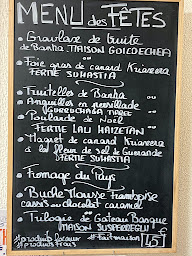 MENU des FÊTES
• Gravlaxe de truite
de Banka MAISON GOICOECHEA
• Foie gras de canard Kriaxera
FERME SUHASTIA
• Truitelles de Banka
• Anguilles en persillade
• Poularde de Noël
FERME LAU HAIZETAN
• Magret de canard Kriaxera
à la fleur de sel de Guérande
FERME SUHASTIA
• Fromage du Pays
• Buche Mousse Framboise
cassis au chocolat caramel
• Trilogie de Gateau Basque
MAISON
#produits locaux #faitmaison 45€
#produits frais